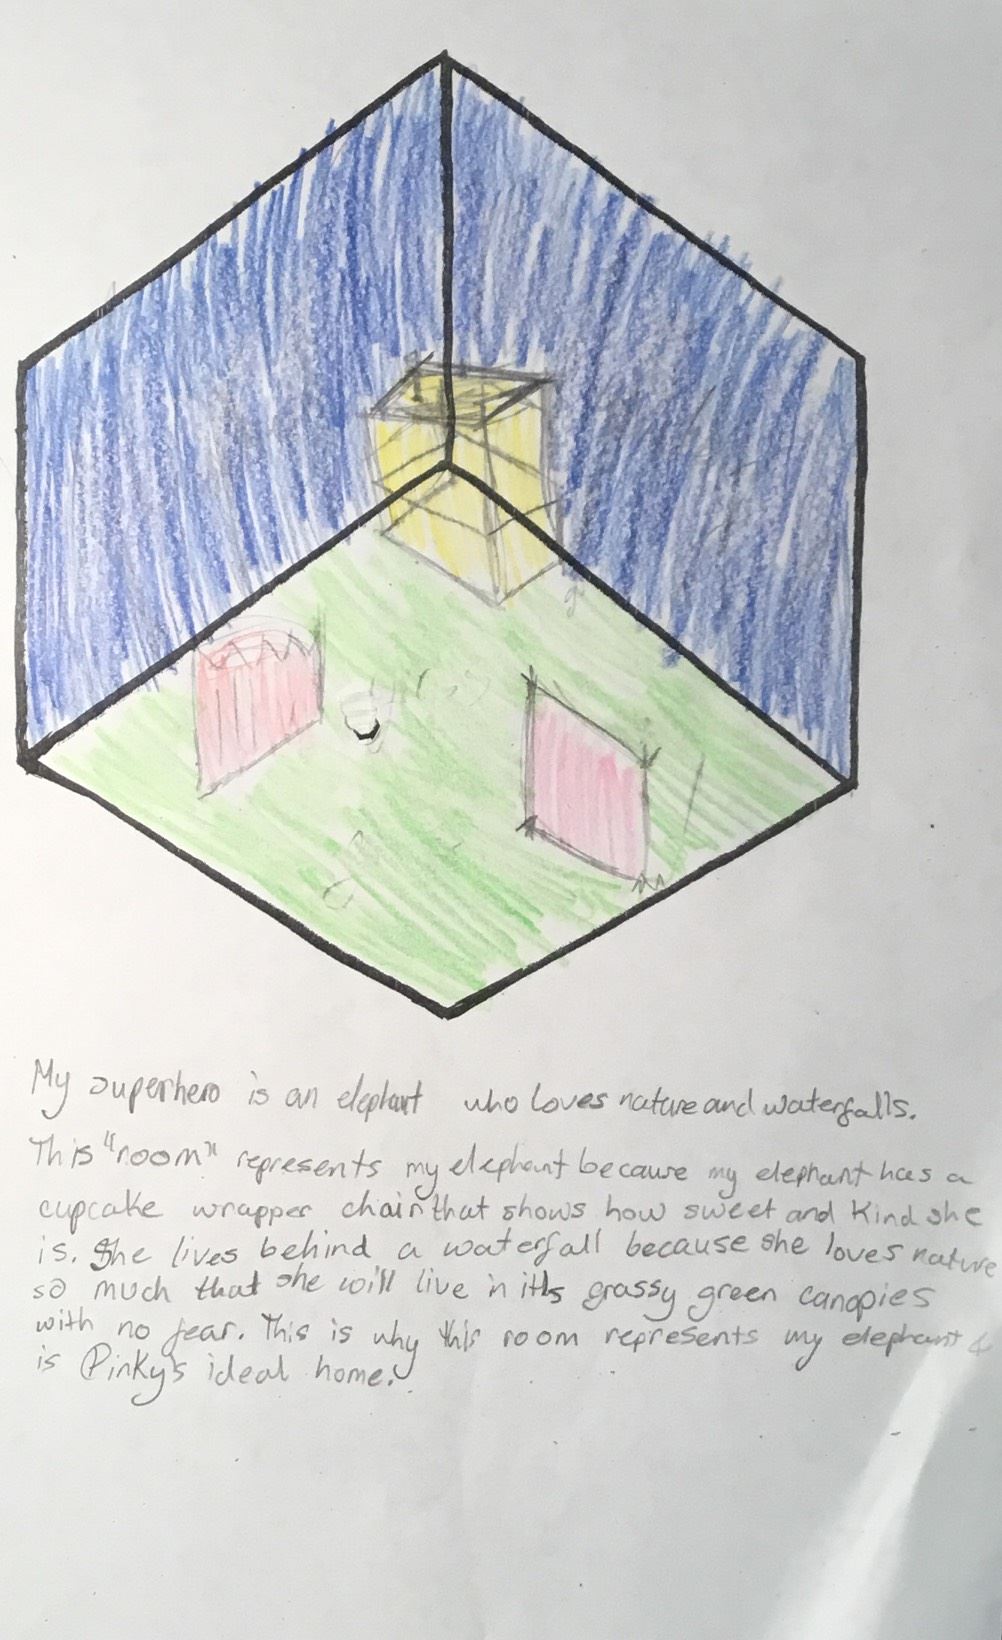 My superhero is an elephant who loves nature and waterfalls.
This "room" represents my elephant because my elephant has a
cupcake wrapper chair that shows how sweet and kind she
is. She lives behind a waterfall because she loves nature
so much that she will live in its grassy green canopies
with no fear. This is why this room represents my elephant &
is Pinky's ideal home.